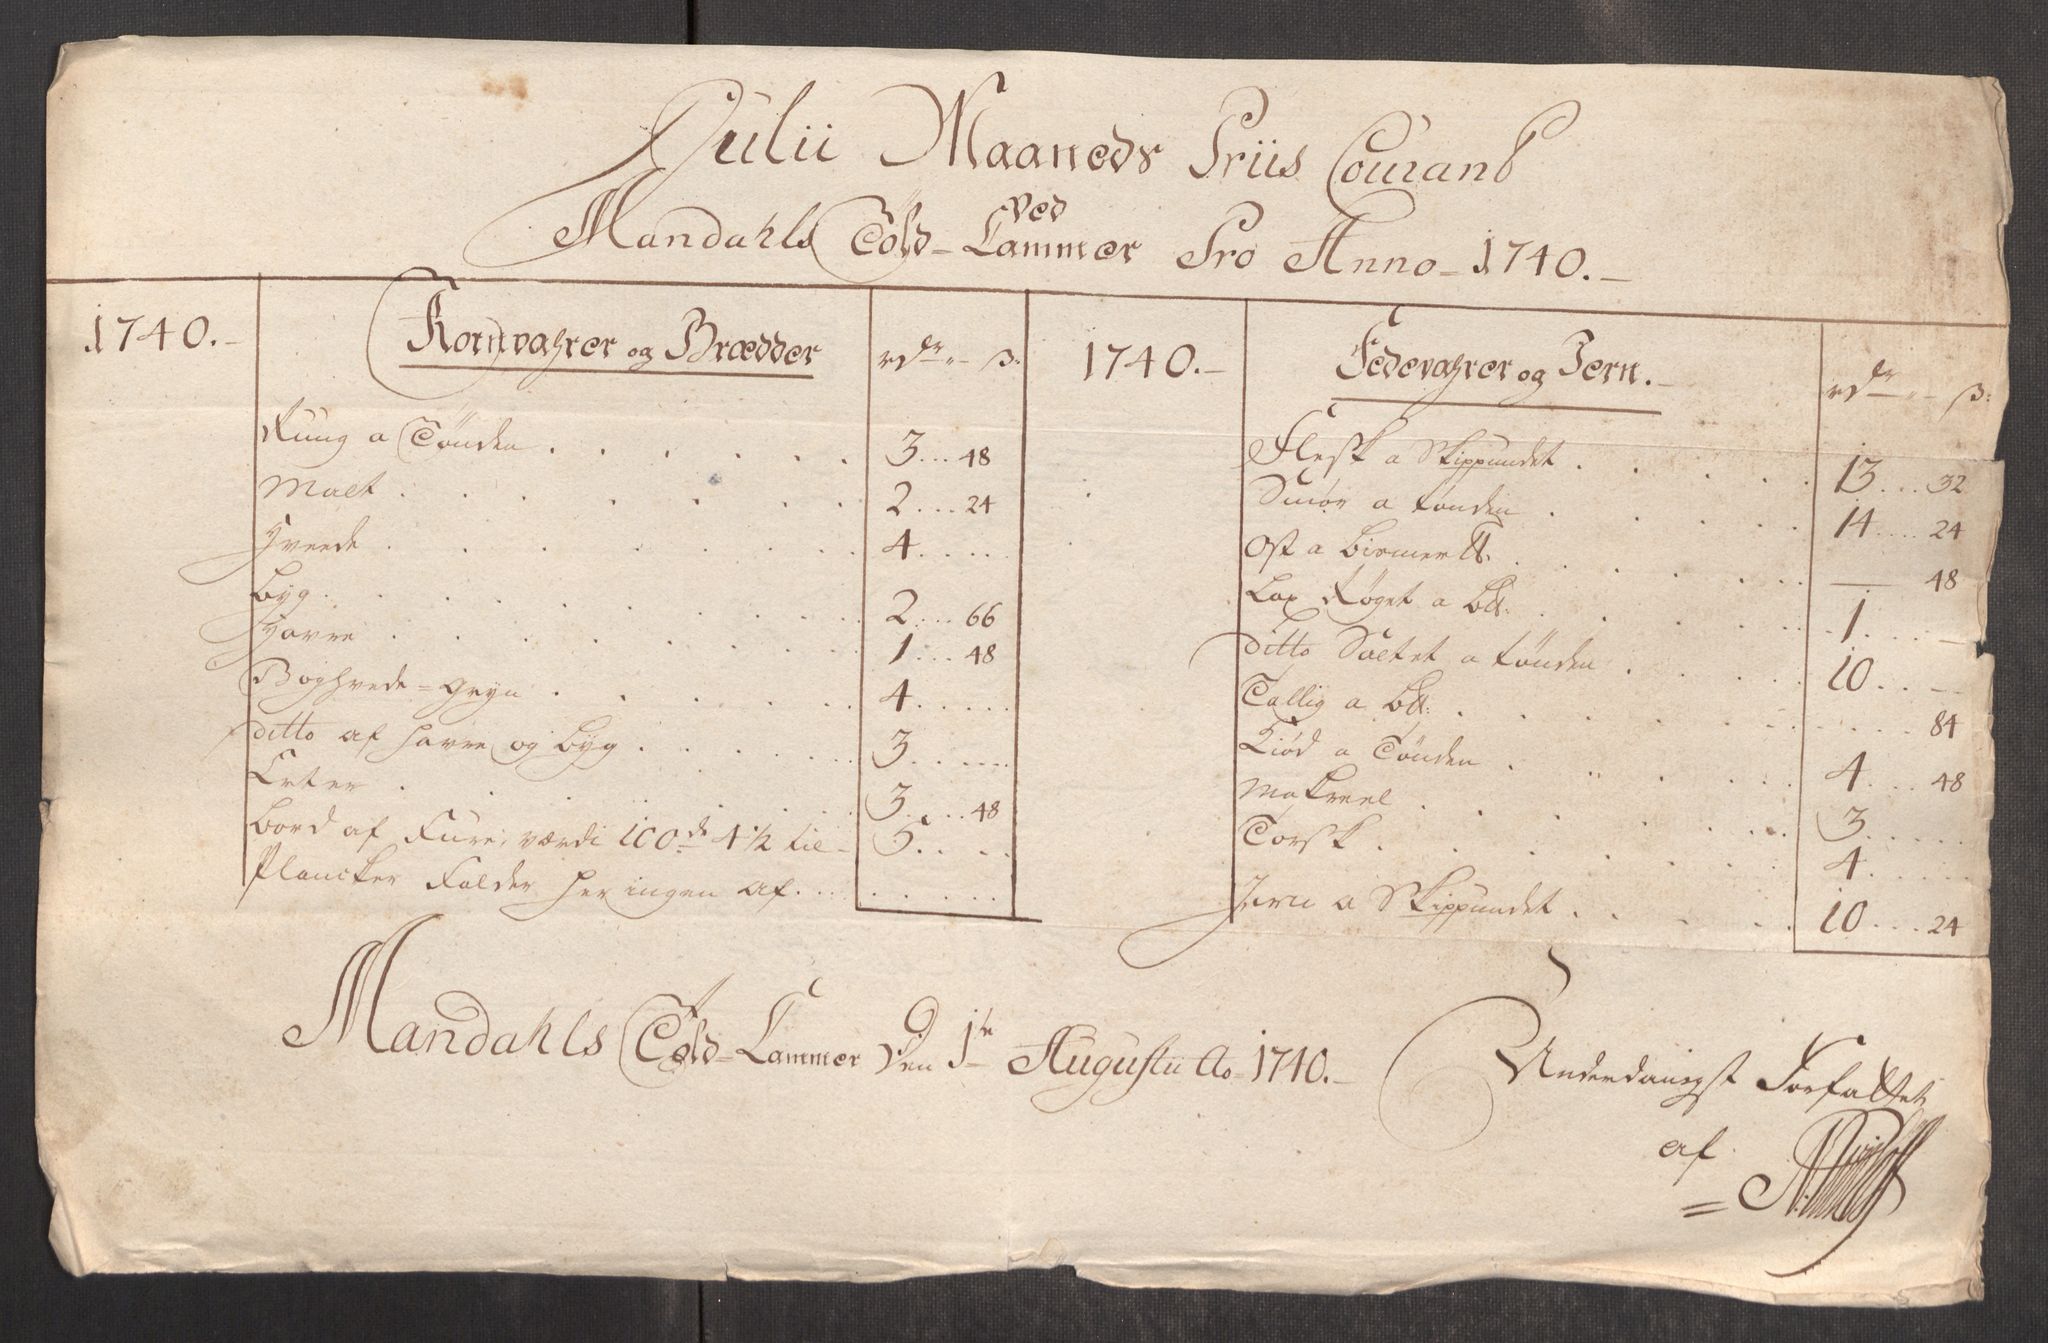 Julii Maaneds Priis Courant
ved
Mandahls Told-Cammer Pro Anno-1740.-
1740.- Kornvahrer og Brædder rdr - ß:
Rung a Tönden . . . . . . 3 ... 48
Malt . . . . . . 2 ... 24
Hveede . . . . . . 4 . . . . .
Byg . . . . . . 2 ... 66
Havre . . . . . . 1 ... 48
Boghvede=gryn . . . . . 4 . . . . .
ditto af Havre og Byg . . . . 3 . . . . .
Erter . . . . . . 3 ... 48
Bord af Fure, værdi 100de 4 1/2 til- 5 . . . .
Plancker Falder her ingen af. . . . . . . .
1740.- Fedevahrer og Jern.- rdr - ß:
Flesk a Skippundet . . . . 13 ... 32
Smør a tønden . . . . 14 .... 24
Ost a Bismer ℔. . . . . . — 48
Lax Røget a B℔. . . . . . 1 . . . . —
ditto Saltet a tønden . . . . 10 . . . —
Tallig a B℔. . . . . . . . . 84
Kiød a Tönden . . . . 4 .... 48
Makreel . . . . . 3 . . . . .
Torsk . . . . . . 4 . . . . .
Jern a Skippundet . . . . 10 ... 24
Mandahls Told-Cammer Den 1te Augustii Ao-1740.-
Underdanigst Forfattet
af